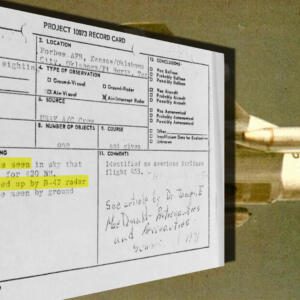 PROJECT 10073 RECORD CARD
2. LOCATION
Forbes AFB, Kansas/Oklahoma
City, Oklahoma/Ft Worth, Tex
12. CONCLUSIONS
Was Balloon
Probably Balloon
Possibly Balloon
Was Aircraft
Probably Aircraft
Possibly Aircraft
Was Astronomical
Probably Astronomical
Possibly Astronomical
Other
Insufficient Data for Evaluation
Unknown
4. TYPE OF OBSERVATION
Ground-Visual
Ground-Radar
Air-Visual
Air-Intercept Radar
6. SOURCE
8. NUMBER OF OBJECTS
one
9. COURSE
not given
11. COMMENTS
seen in sky that
for 420 NM.
ed up by B-47 radar
seen by ground
Identified as American Airlines
flight
See article by Dr James E
McDonald Astronautics
and Aeronautics
1971